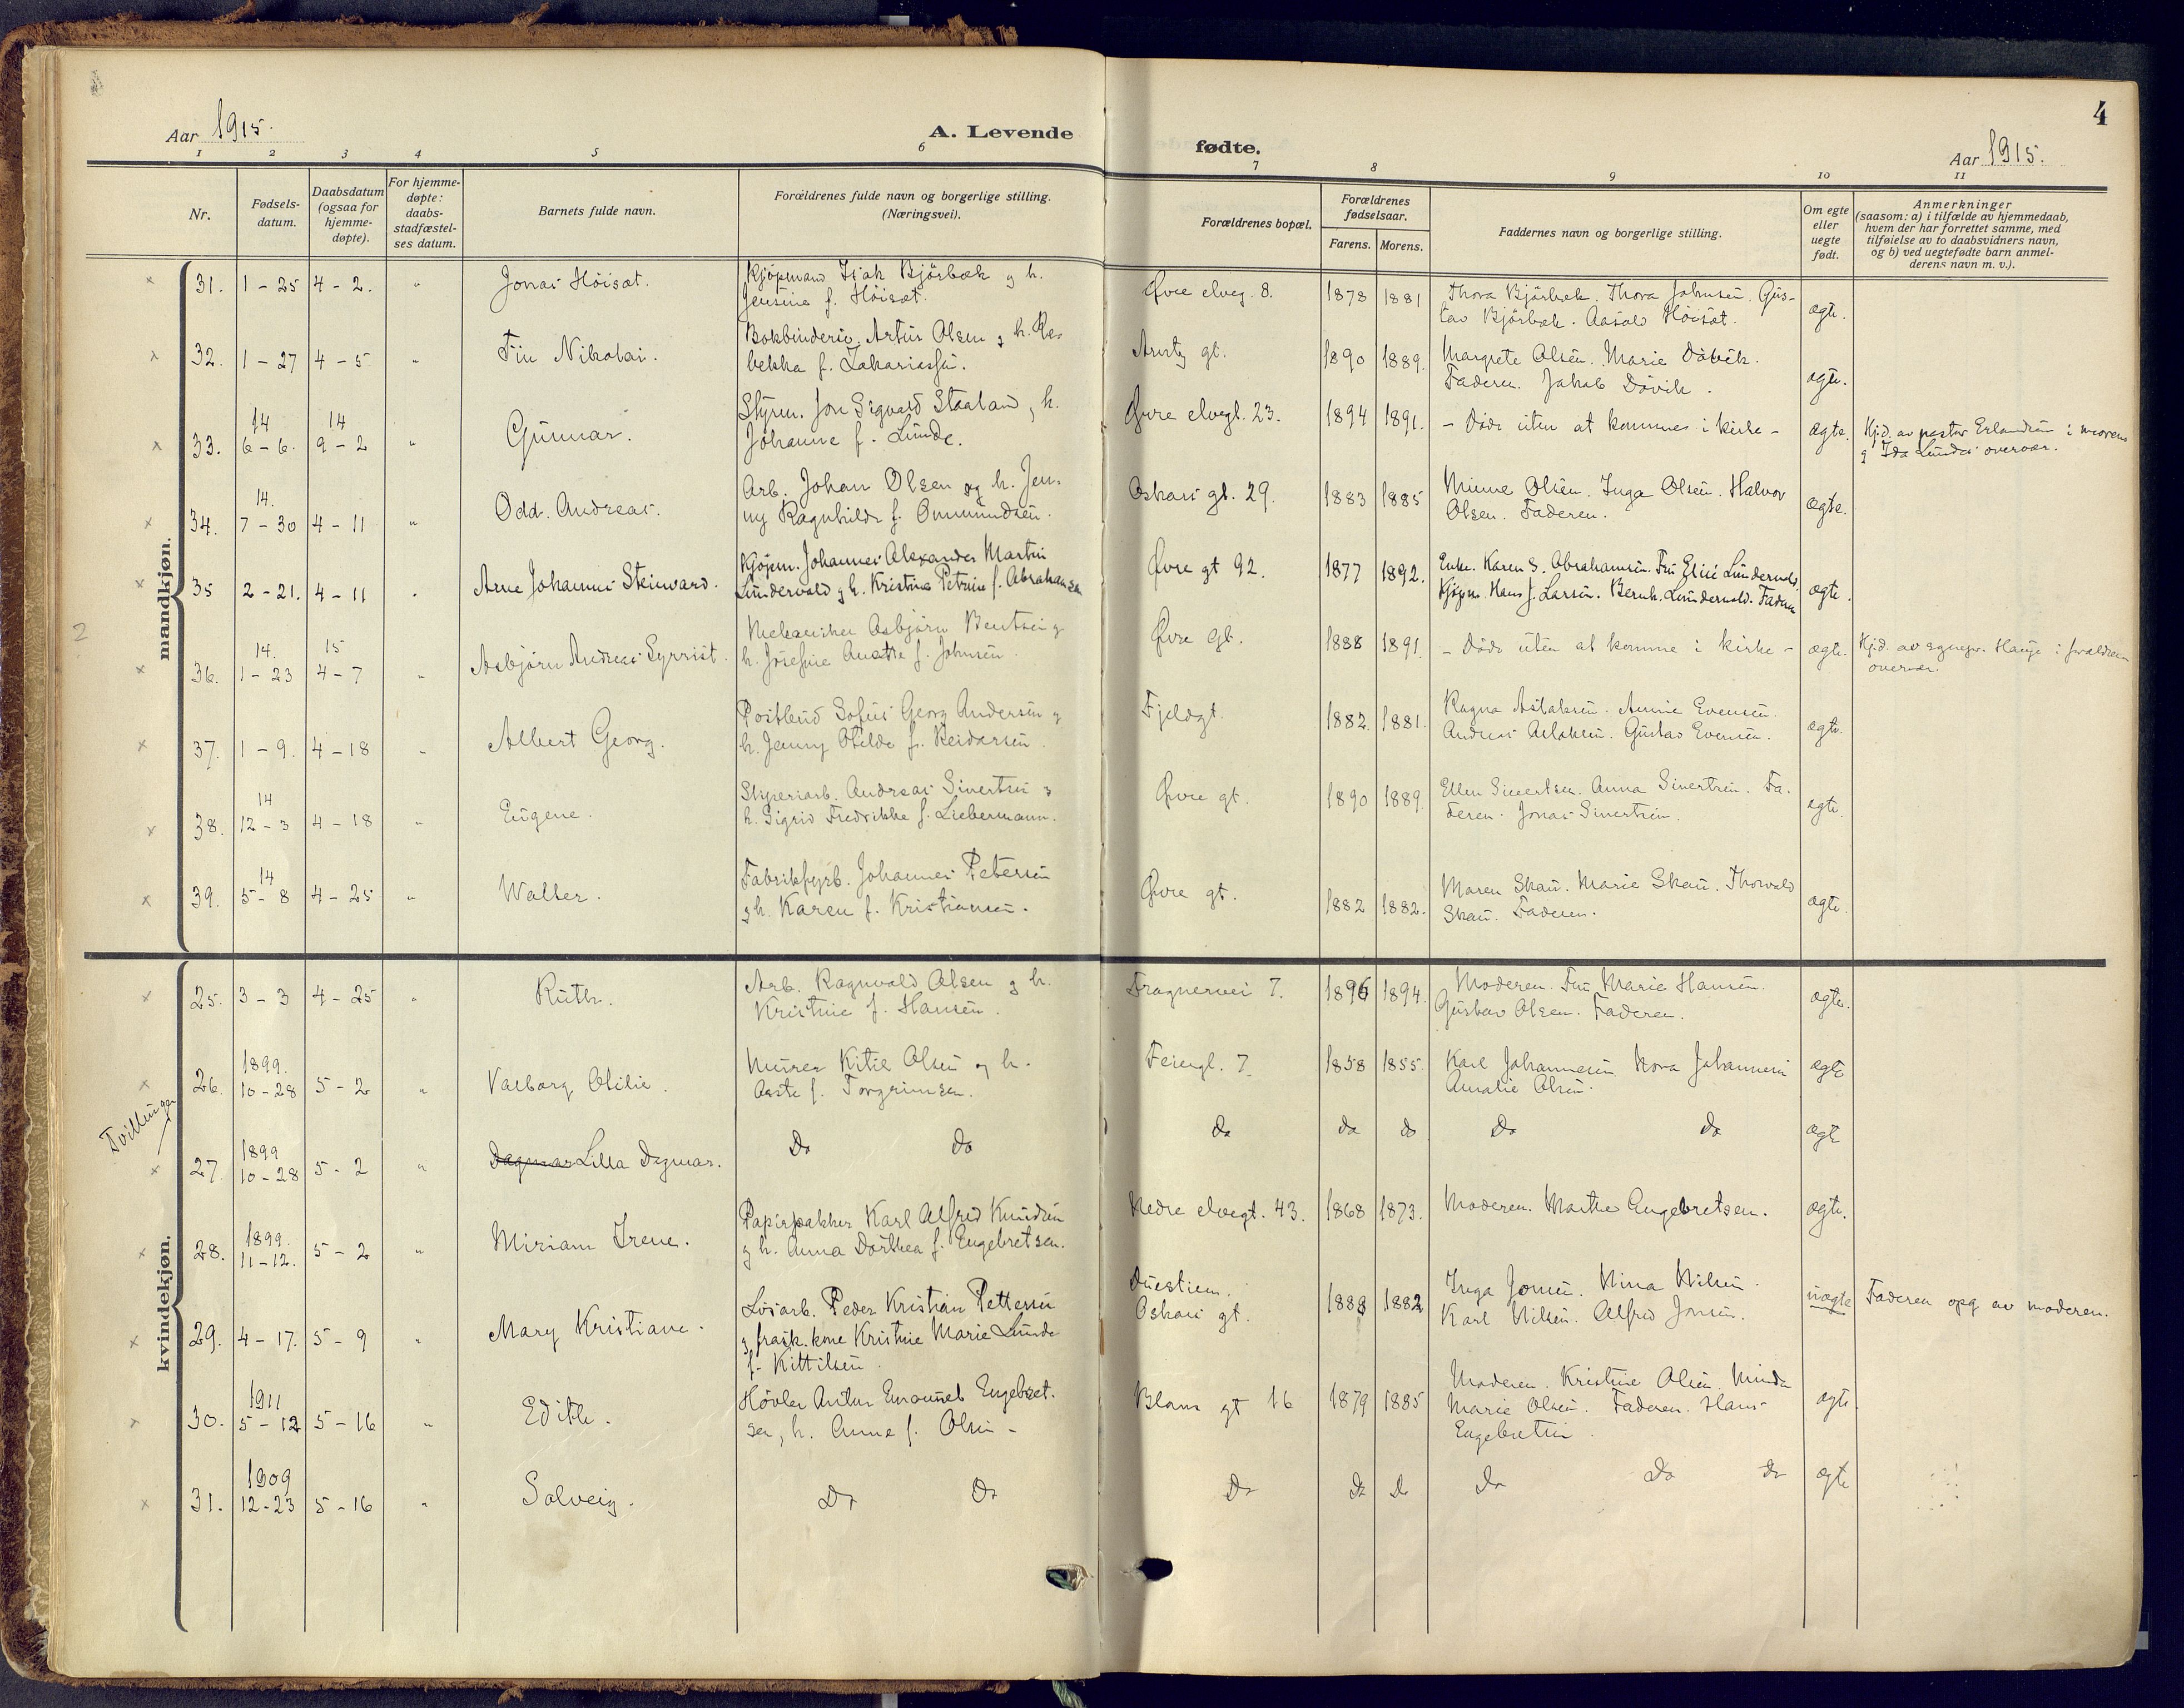 4
Aar 1915.
A. Levende
fødte.
Aar 1915.
1 2 3 4 5 6 7 8 9 10 11
Nr.
Fødsels-
datum.
Daabsdatum
(ogsaa for
hjemme-
døpte).
For hjemme-
døpte:
daabs-
stadfæstel-
ses datum.
Barnets fulde navn.
Forældrenes fulde navn og borgerlige stilling.
(Næringsvei).
Forældrenes bopæl.
Forældrenes
fødselsaar.
Farens. Morens.
Faddernes navn og borgerlige stilling.
Om egte
eller
uegte
født.
Anmerkninger
(saasom: a) i tilfælde av hjemmedaab,
hvem der har forrettet samme, med
tilføielse av to daabsvidners navn,
og b) ved uegtefødte barn anmel-
derens navn m. v.).
mandkjøn.
31. 1 - 25 4 - 2. " Jonas Höisæt.
Kjöpmand Isak Bjørbæk g h.
Jensine f. Höisæt.
Øvre elveg. 8. 1878 1881
Thora Bjørbæk. Thora Johnsen. Gus-
tav Bjørbæk. Aasold Höisæt.
ægte.
32. 1 - 27 4 - 5 " Fin Nikolai.
Bokbindersv. Artur Olsen g h. Re-
bekka f. Zakariassen.
gt. 1890 1889.
Margrete Olsen. Marie Dövik.
Faderen. Jakob Dövik.
ægte.
33. 14 6 - 6. 14 9 - 2 " Gunnar.
Styrm. Jon Sigvald Staaland g h.
Johanne f. Lunde.
Øvre elvegt. 23. 1894 1891.
- Døde uten at kommes i kirke -
ægte.
Hj.d. av pastor Erlandsen i morens
g Ida Lundes overvær.
34. 14. 7 - 30 4 - 11 " Odd. Andreas.
Arb. Johan Olsen og h. Jen-
ny Ragnhilde f. Ommundsen.
Oskars gt. 29. 1883 1885
Minne Olsen. Inga Olsen. Halvor
Olsen. Faderen.
ægte.
35 2 - 21. 4 - 11 " Arne Johannes Steinvard.
Kjøpm. Johannes Alexander Martin
Lundervold g h. Kristine Petrine f. Abrahamsen
Øvre gt 92. 1877 1892.
Enke. Karen S. Abrahamsen. Fru Elise Lundervold.
Kjøpm. Hans J. Larsen. Bernh. Lundervold. Faderen
ægte.
2
36. 14. 1 - 23 15 4 - 7 " Asbjørn Andreas Syrrist.
Mekaniker Asbjørn Bentsen g
h. Josefine Anette f. Johnsen.
Øvre gt. 1888 1891.
- Døde uten at komme i kirke -
ægte.
Hj.d. av sognepr. Hauge i forældrenes
overvær.
37. 1 - 9. 4 - 18 " Albert Georg.
Postbud Sofus Georg Andersen g
h. Jenny Otilde f. Reidarsen.
Fjeldgt. 1882. 1881.
Ragna Aslaksen. Annie Evensen.
Andreas Aslaksen. Gustav Evensen.
ægte.
38. 14 12 - 3 4 - 18 " Eugene.
Andreas Sivertsen g
h. Sigrid Fredrikke f. Liebermann.
Øvre gt. 1890 1889.
Ellen Sivertsen. Anna Sivertsen. Fa-
deren. Jonas Sivertsen.
egte.
39. 14 5 - 8 4 - 25 " Walter.
Fabrikfyrb. Johannes Petersen
g h. Karen f. Kristiansen.
Øvre gt. 1882 1882.
Maren Skau. Marie Skau. Thorvald
Skau. Faderen.
ægte.
kvindekjøn.
25. 3 - 3 4 - 25 " Ruth.
Arb. Ragnvald Olsen g h.
Kristine f. Hansen.
Fragnervei 7. 1896 1894.
Moderen. Fru Marie Hansen.
Gustav Olsen. Faderen.
ægte.
Tvillinger
26. 1899. 10 - 28 5 - 2 " Valborg Otilie.
Murer Kitil Olsen og h.
Aaste f. Torgrimsen.
Feiergt. 7 1858 1855.
Karl Johannesen Nora Johannesen
Amalie Olsen.
ægte
27. 1899 10 - 28 5 - 2 " Dagmar Lilla Dagmar.
Do Do
Do Do Do Do Do ægte
28. 1899. 11 - 12. 5 - 2 " Miriam Irene.
Papirpakker Karl Alfred Knudsen
g h. Anna Dorthea f. Engebretsen.
Nedre elvegt. 43. 1868 1873.
Moderen. Marthe Engebretsen.
ægte.
29. 4 - 17. 5 - 9 " Mary Kristiane.
Løsarb. Peder Kristian Pettersen
g frask. kone Kristine Marie Lunde
f. Kittilsen.
Duestien.
Oskars gt. 1888 1882
Inga Jonsen. Nina Nilsen.
Karl Nilsen. Alfred Jonsen.
uægte
Faderen opg. av moderen.
30. 1911 5 - 12 5 - 16 " Edith.
Høvler Artur Emanuel Engebret-
sen, h. Anne f. Olsen -
Bloms gt 16 1879 1885
Moderen. Kristine Olsen. Minda
Marie Olsen. Faderen. Hans
Engebretsen.
ægte
31. 1909 12 - 23 5 - 16 " Solveig.
Do Do
Do Do Do Do Do Do ægte